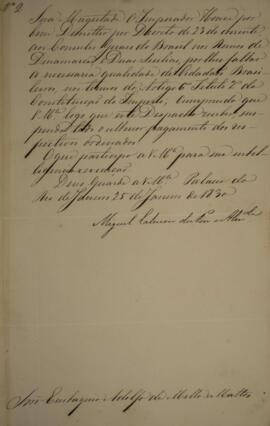 Nº 2.
Sua Magestade O Imperador Houve por
bem Demittir por Decreto de 23 do corrente
aos Consules Geraes do Brasil nos Reinos de
Dinamarca, e Duas Sicilias, por lhes faltar
a necessaria qualidade de Cidadãos Brasi-
leiros, nos termos do Artigo 6º Titulo 2º da
Constituição do Imperio, Cumprindo que
V. Mce. logo que este Despacho receba, sus-
penda todo o ulterior pagamento dos res-
pectivos ordenados.
O que participo a V. Mce. para sua intel-
ligencia e execução.
Deos Guarde a V. Mce. Palacio do
Rio de Janeiro 25 de Janeiro de 1830
Miguel Calmon du Pin e Almda.
Snr. Eustaquio Adolfo de Mello e Mattos